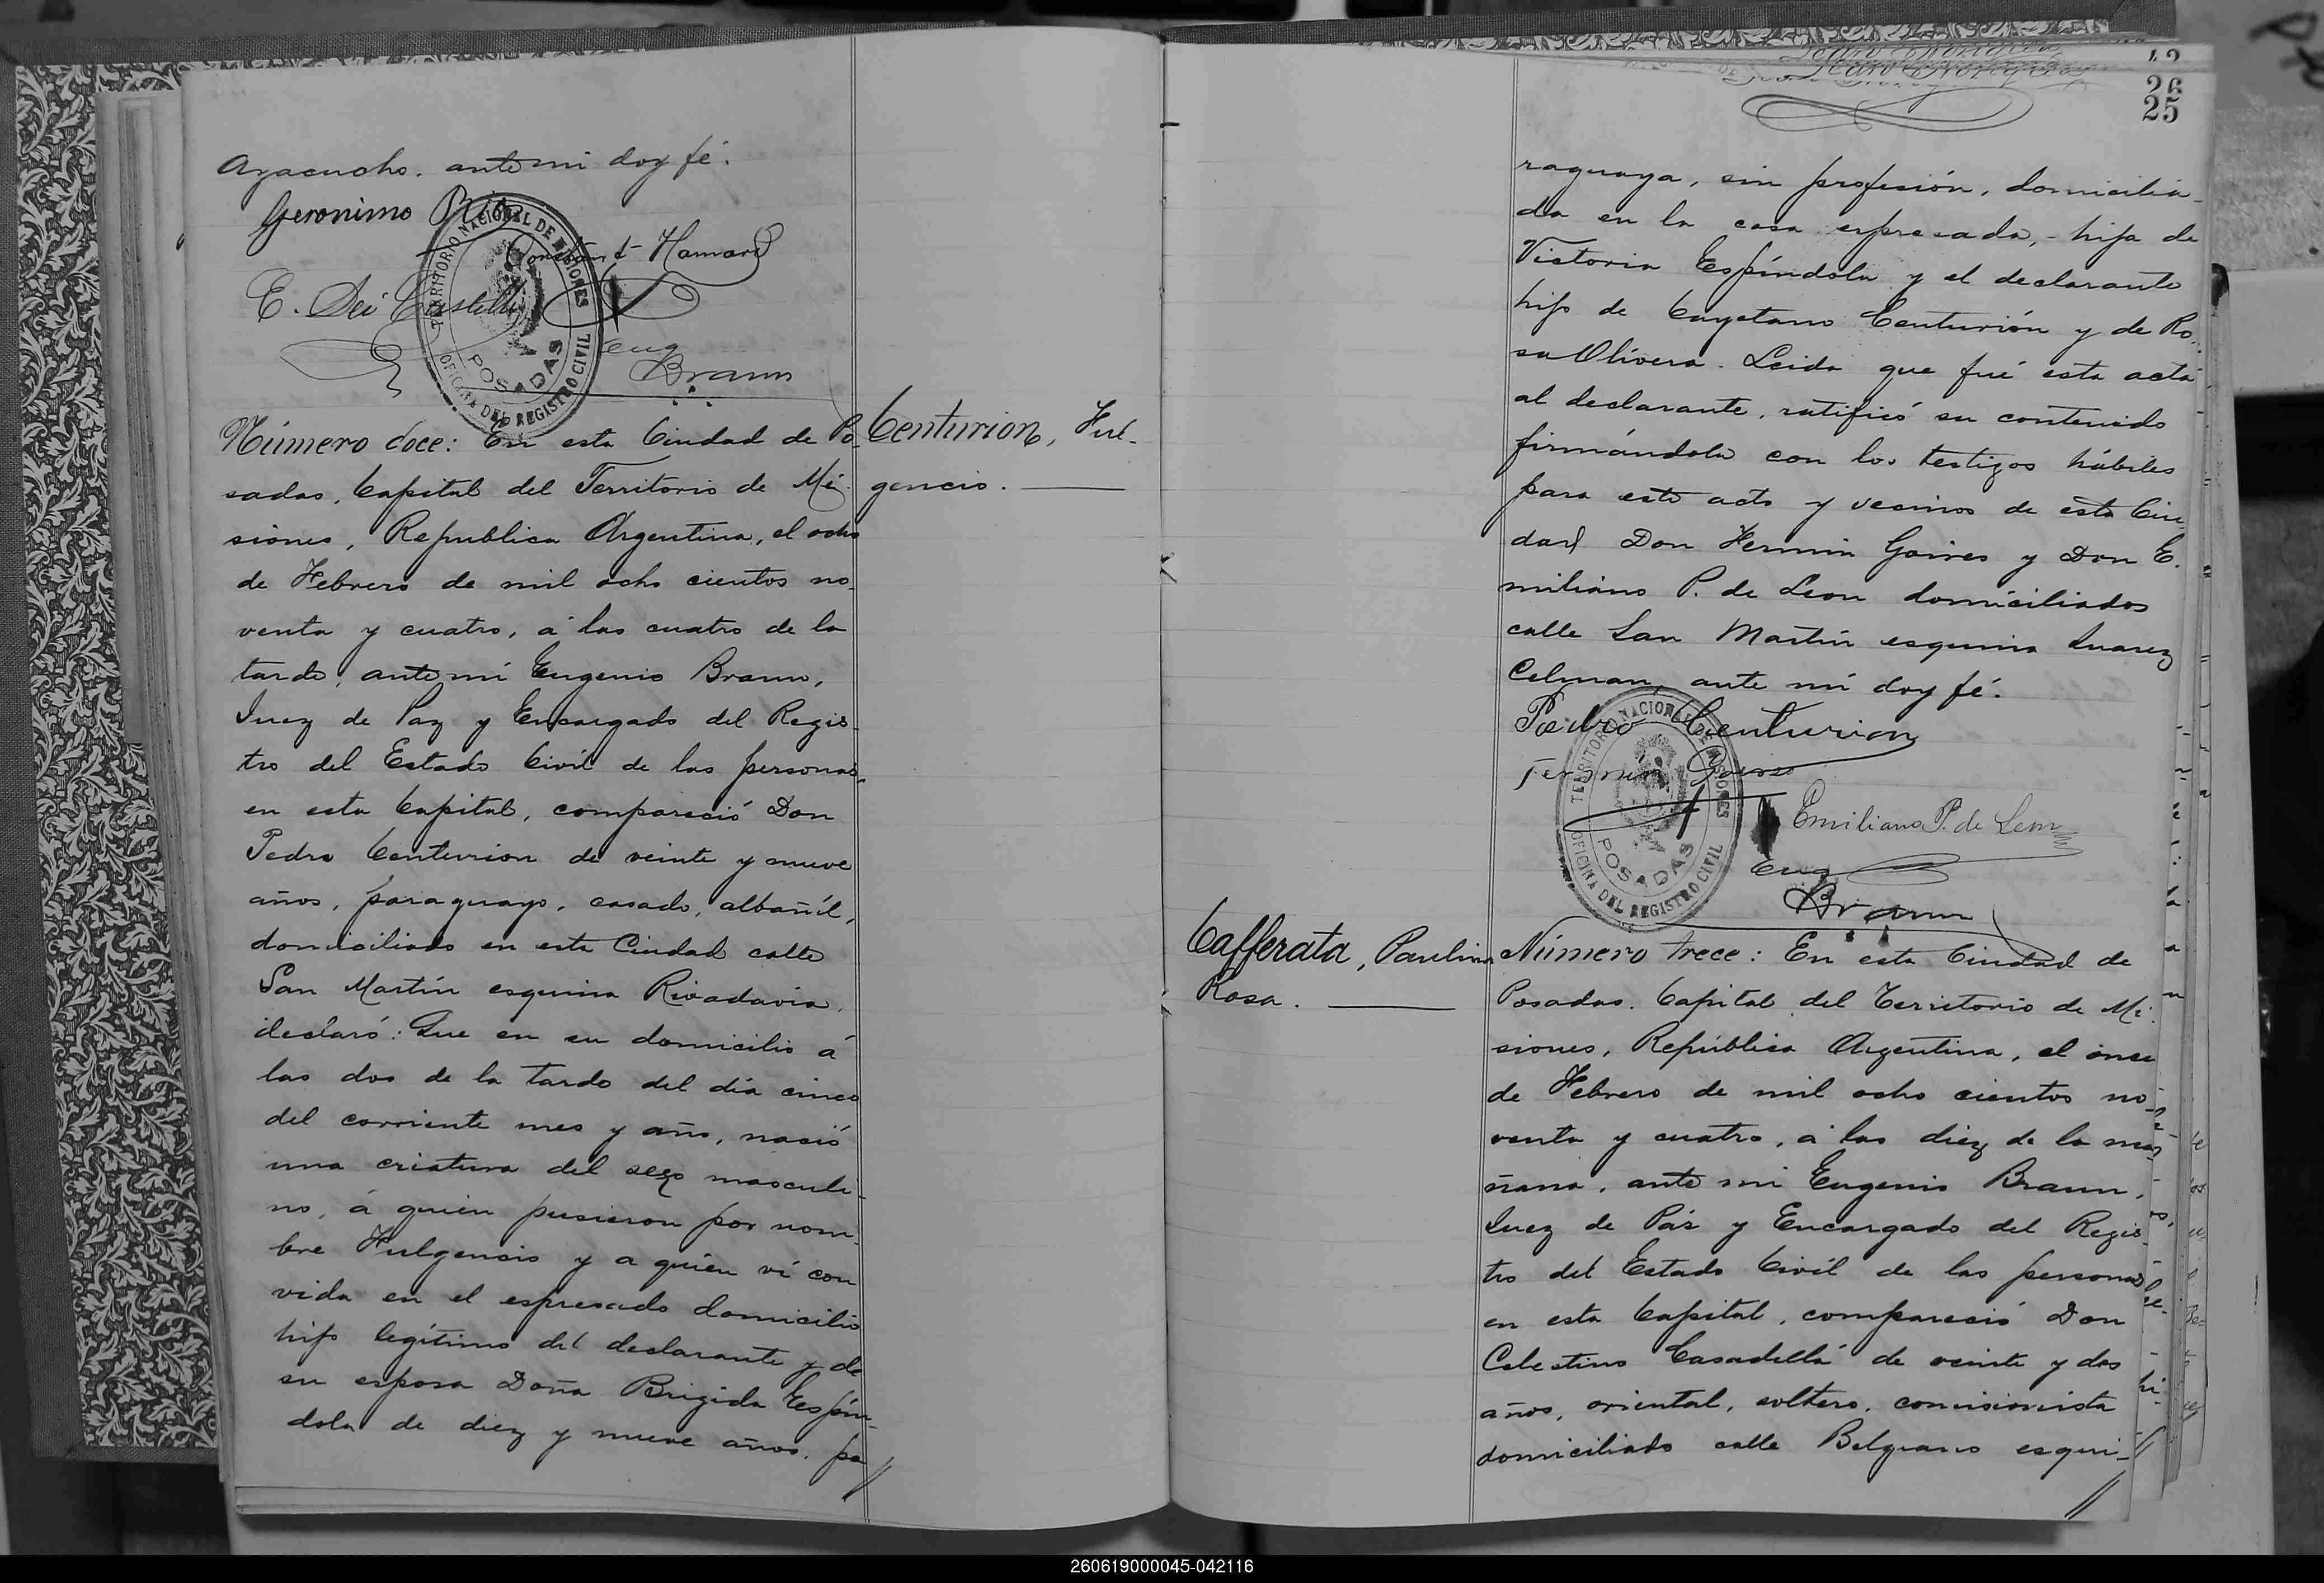 Ayacucho. ante mi doy fé.
Geronimo
Constant Hamard
E. Dei Castelli
Eug
Braun
TERRITORIO NACIONAL DE MISIONES
POSADAS
OFICINA DEL REGISTRO CIVIL
Centurion, Ful-
gencio.
Número doce: En esta Ciudad de Po-
sadas, Capital del Territorio de Mi-
siones, Republica Argentina, el ocho
de Febrero de mil ocho cientos no-
venta y cuatro, á las cuatro de la
tarde, ante mi Eugenio Braun,
Juez de Paz y Encargado del Regis-
tro del Estado Civil de las personas
en esta Capital, compareció Don
Pedro Centurion de veinte y nueve
años, paraguayo, casado, albañil,
domiciliado en esta Ciudad calle
San Martin esquina Rivadavia,
declaró: Que en su domicilio á
las dos de la tarde del día cinco
del corriente mes y año, nació
una criatura del sexo masculi-
no, á quien pusieron por nom-
bre Fulgencio y a quién ví con
vida en el espresado domicilio
hijo legítimo del declarante y de
su esposa Doña Brigida Espín-
dola de diez y nueve años, pa
26
25
raguaya, sin profesión, domicilia-
da en la casa espresada, - hija de
Victoria Espíndola y el declarante
hijo de Cayetano Centurión y de Ro-
sa Olivera. Leida que fué esta acta
al declarante, ratificó su contenido
firmándola con los testigos hábiles
para este acto y vecinos de esta Ciu-
dad Don Fermin Goires y Don E.
miliano P. de Leon domiciliados
calle San Martín esquina Juarez
Celman, ante mí doy fé.
Pedro Centurion
Fermin
Emiliano P. de Leon
Eug
Braun
TERRITORIO NACIONAL DE MISIONES
POSADAS
OFICINA DEL REGISTRO CIVIL
Cafferata, Paulina
Rosa.
Número trece: En esta Ciudad de
Posadas. Capital del Territorio de Mi-
siones, República Argentina, el once
de Febrero de mil ocho cientos no-
venta y cuatro, á las diez de la ma-
ñana, ante mi Eugenio Braun,
Juez de Páz y Encargado del Regis-
tro del Estado Civíl de las personas
en esta Capital, compareció Don
Celestino Casadellá de veinte y dos
años, oriental, soltero, comisionista
domiciliado calle Belgrano esqui-
260619000045-042116